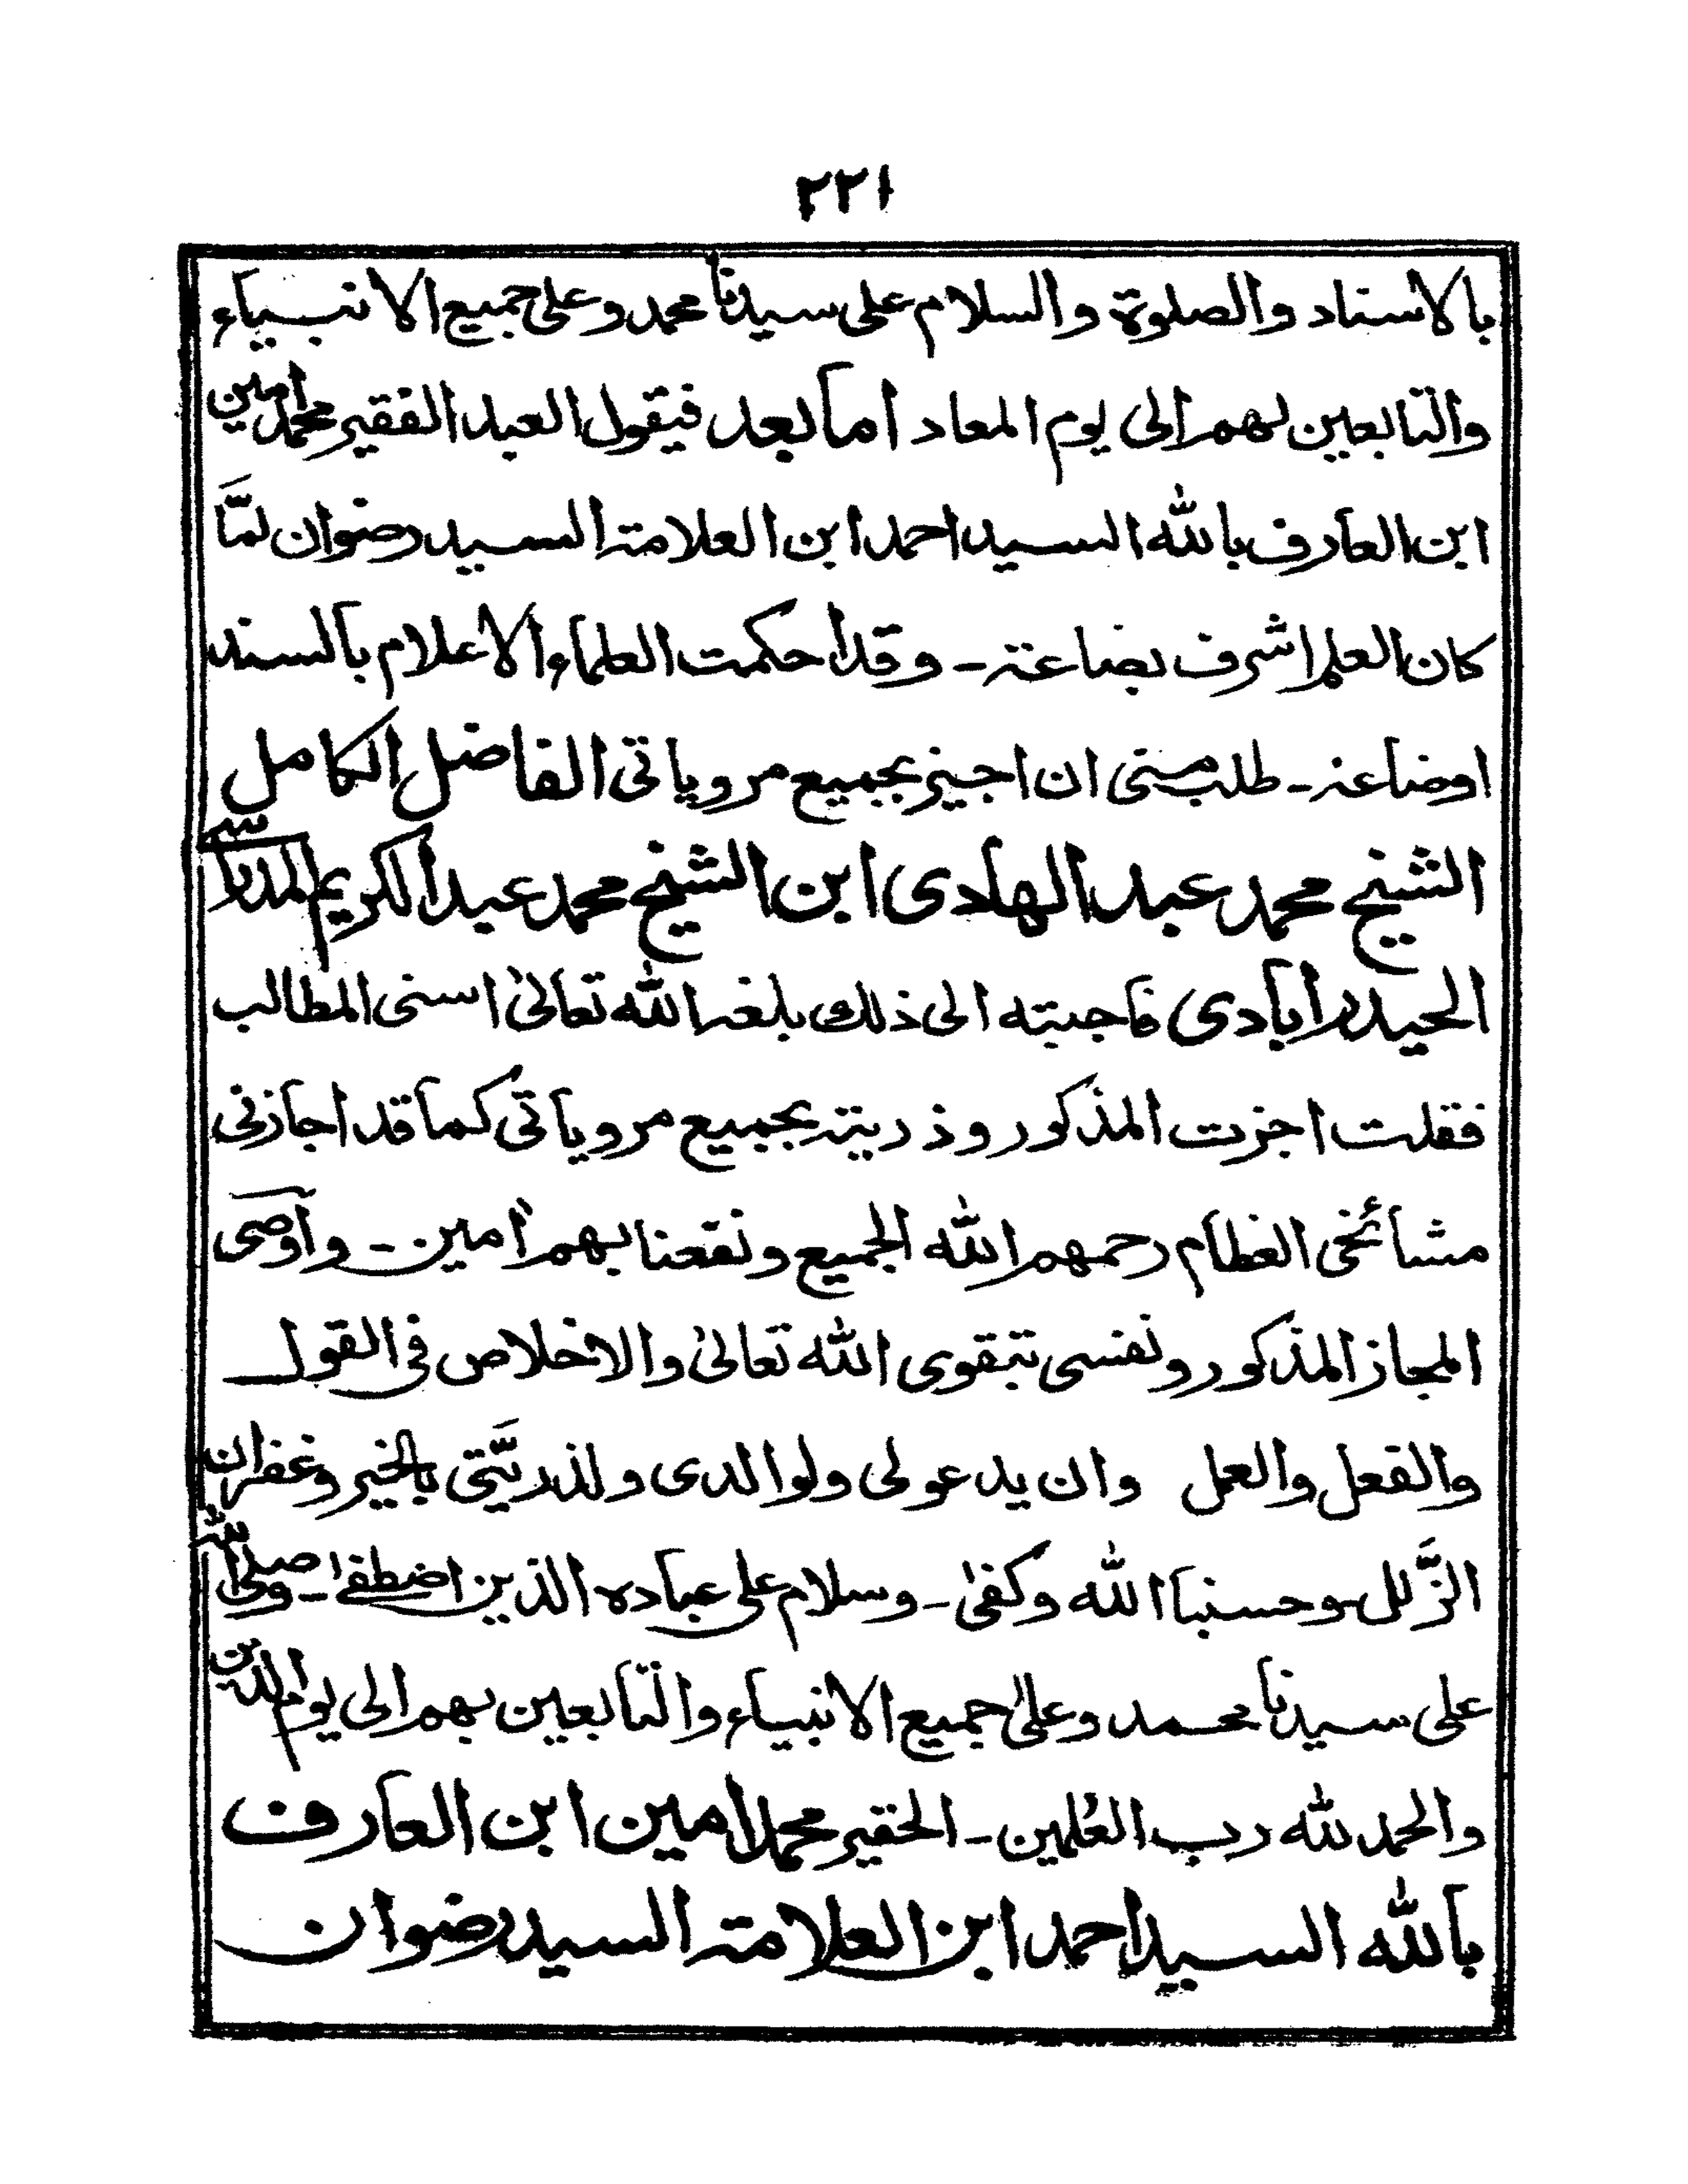 ٢٢١
بالاسناد والصلوة والسلام على سيدنا محمد وعلى جميع الانبياء
والتابعين لهم الى يوم المعاد اما بعد فيقول العبد الفقير محمد امين
ابن العارف بالله السيد احمد ابن العلامة السيد رضوان لمَّا
كان العلم اشرف بضاعة ـ وقد احكمت العلماء الاعلام بالسند
اوضاعه ـ طلب منى ان اجيز بجميع مروياتى الفاضل الكامل
الشيخ محمد عبد الهادى ابن الشيخ محمد عبد الكريم المدراسى
الحيدرابادى فاجبته الى ذلك بلغه الله تعالىٰ اسنى المطالب
فقلت اجزت المذكور وذريته بجميع مروياتى كما قد اجازنى
مشائخى العظام رحمهم الله الجميع ونفعنا بهم اٰمين ـ واوصى
المجاز المذكور ونفسى بتقوى الله تعالىٰ والاخلاص فى القول
والفعل والعمل وان يدعولى ولوالدى ولذريَّتى بالخير وغفران
الزَّلل وحسبنا الله وكفىٰ ـ وسلام على عباده الذين اصطفىٰ ـ وصلى الله
على سيدنا محمد وعلىٰ جميع الانبياء والتابعين بهم الى يوم الدين
والحمد لله رب العٰلمين ـ الحقير محمد امين ابن العارف
بالله السيد احمد ابن العلامة السيد رضوان